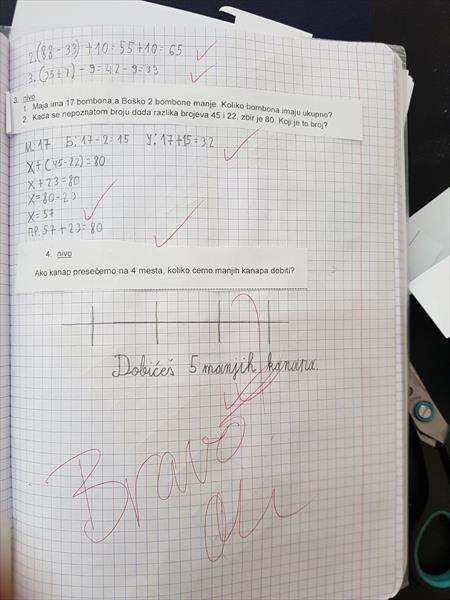 2. (88-33)+10=55+10=65
3. (35+7)-9=42-9=33
3. nivo
1. Maja ima 17 bombona,a Boško 2 bombone manje. Koliko bombona imaju ukupno?
2. Kada se nepoznatom broju doda razlika brojeva 45 i 22, zbir je 80. Koji je to broj?
М: 17 Б: 17-2=15 У: 17+15=32
X+(45-22)=80
X+23=80
X=80-23
X=57
ПР. 57+23=80
4. nivo
Ako kanap presečemo na 4 mesta, koliko ćemo manjih kanapa dobiti?
Dobićeš 5 manjih kanapa.
Bravo